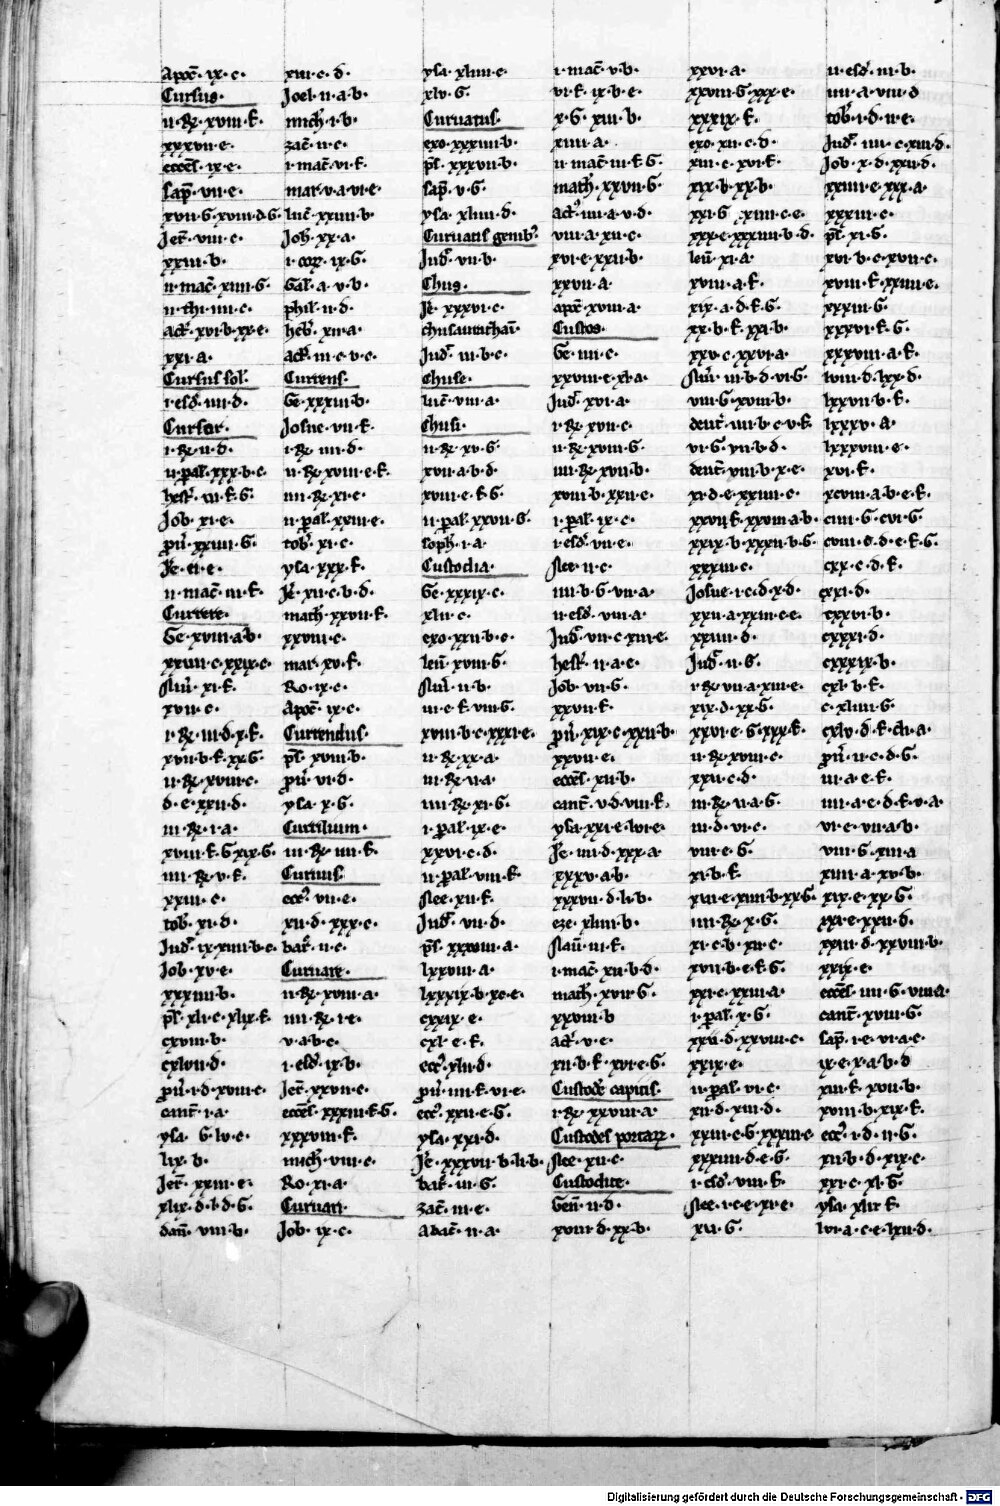 Apoc̄. ix. c.
Cursus.
ii. Rḡ. xviii. f.
xxxvii. e.
eccēs. ix. e.
Sap̄. vii. e.
xvii. G. xviii. d. G.
Jer̄. viii. c.
xxiii. b.
ii. mac̄. xiiii. G.
ii. thi. iiii. c.
act̄. xvi. b. xx. e.
xxi. a.
Cursus sol̄.
i. esd̄. iiii. d.
Cursor.
i. Rḡ. ii. d.
ii. pal̄. xxx. b. c.
hest̄. iii. f. G.
Job. xi. e.
pū. xxiiii. G.
ii. mac̄. iii. f.
Currere.
Ge. xviii. a. b.
xxviii. c. xxix. c.
Nūi. xi. f.
xvii. c.
i. Rḡ. iii. d. x. f.
xvii. b. f. xx. G.
ii. Rḡ. xviii. c.
d. e. xxii. d.
iii. Rḡ. i. a.
xviii. f. G. xix. G.
iiii. Rḡ. v. f.
xxiii. c.
tob̄. xi. d.
Jud̄. ix. xiiii. b. c.
Job. xv. e.
xxxiiii. b.
ps̄. xli. c. xlix. f.
cxviii. b.
cxlvii. d.
pū. i. d. xviii. c.
cant̄. i. a.
ysa. G. lv. e.
lix. b.
Jer̄. xxiii. e.
xlix. d. l. d. G.
dan̄. viii. b.
xiii. c. d.
Joel. ii. a. b.
mich̄. i. b.
zac̄. ii. c.
i. mac̄. vi. f.
mar̄. v. a. vi. e.
luc̄. xxiiii. b.
Joh̄. xx. a.
i. cor̄. ix. G.
Gal. a. v. b.
phil̄. ii. d.
heb̄. xii. a.
act̄. iii. c. v. c.
Currens.
Ge. xxxiii. b.
Josue. vii. f.
i. Rḡ. iiii. d.
ii. Rḡ. xviii. e. f.
iiii. Rḡ. xi. e.
ii. pal̄. xxiii. e.
tob̄. xi. c.
ysa. xxx. f.
Jē. xii. c. b. d.
math̄. xxvii. f.
xxviii. c.
mar̄. xv. f.
Ro. ix. c.
Apoc̄. ix. c.
Currendus.
ps̄. xviii. b.
pū. vi. d.
ysa. x. G.
Curtilium.
iii. Rḡ. iiii. f.
Curuus.
ecc̄. vii. e.
xii. d. xxx. c.
bar̄. ii. c.
Curuare.
ii. Rḡ. xviii. a.
iiii. Rḡ. i. e.
v. a. b. c.
i. esd̄. ix. b.
Jer̄. xxvii. e.
eccēs. xxxiii. f. G.
xxxviii. f.
mich̄. viii. c.
Ro. xi. a.
Curuari.
Job. ix. c.
ysa. xliiii. e.
xlv. G.
Curuatus.
exo. xxxiiii. b.
ps̄. xxxvii. b.
Sap̄. v. G.
ysa. xliiii. d.
Curuatis genib̄.
Jud̄. vii. b.
Chus.
Jē. xxxvi. c.
Jud̄. iii. b. c.
Chuse.
luc̄. viii. a.
Chusi.
ii. Rḡ. xv. G.
xvii. a. b. d.
xviii. e. f. G.
ii. pal̄. xxvii. G.
soph̄. i. a.
Custodia.
Ge. xxxix. c.
xlii. c.
exo. xxii. b. c.
leui. xviii. G.
Nūi. ii. b.
iii. e. f. viii. G.
xviii. b. c. xxxi. e.
ii. Rḡ. xx. a.
iii. Rḡ. ii. a.
iiii. Rḡ. xi. G.
i. pal̄. ix. e.
xxvi. c. d.
ii. pal̄. viii. f.
Nee. xii. f.
Jud̄. vii. d.
ps̄. xxxviii. a.
lxxviii. a.
lxxxix. b. xc. e.
cxxix. e.
cxl. e. f.
ecc̄. xlii. d.
pū. iiii. f. vi. e.
ecc̄. xxii. e. G.
ysa. xxi. d.
Jē. xxxvii. b. li. b.
bar̄. iii. G.
zac̄. iii. e.
Abac̄. ii. a.
i. mac̄. v. b.
vi. f. ix. b. e.
x. G. xiii. b.
xiiii. a.
ii. mac̄. iii. f. G.
math̄. xxvii. G.
act̄. iiii. a. v. d.
viii. a. xii. c.
xvi. e. xxii. b.
xxvii. a.
apoc̄. xviii. a.
Custos.
Ge. iiii. c.
xxviii. e. xl. a.
Jud̄. xvi. a.
i. Rḡ. xvii. c.
ii. Rḡ. xviii. G.
iiii. Rḡ. xvii. b.
xviii. b. xxii. e.
i. pal̄. ix. c.
i. esd̄. vii. e.
Nee. ii. c.
iiii. b. G. vii. a.
ii. esd̄. viii. a.
Jud̄. vii. c. xiii. e.
hest̄. ii. a. e.
Job. vii. G.
xxvii. f.
pū. xix. c. xxii. b.
xxvii. e.
eccēs. xii. b.
cant̄. v. d. viii. f.
ysa. xxi. e. lvi. e.
Jē. iiii. d. xxx. a.
xxxv. a. b.
xxxvii. d. li. b.
eze. xliiii. b.
Nau̅. iii. f.
i. mac̄. xii. b. d.
math̄. xxvii. G.
xxviii. b
act̄. v. e.
xii. b. f. xvi. e. G.
Custode capitis.
i. Rḡ. xxviii. a.
Custodes portar̄.
Nee. xii. c.
Custodire.
Gen̄. ii. d.
xviii. d. xx. b.
xxvi. a.
xxviii. G. xxx. e.
xxxix. f.
exo. xii. c. d.
xiii. c. xvi. f.
xix. b. xx. b.
xxi. G. xiiii. c. e.
xxx. e. xxxiiii. b. d.
leui̅. xi. a.
xviii. a. f.
xix. a. d. f. G.
xx. b. f. xxi. b.
xxv. c. xxvi. a.
Nūi. iii. b. d. vi. G.
viii. G. xviii. b.
deut̄. iiii. b. c. v. f.
vi. G. vii. b. d.
deut̄. viii. b. x. e.
xi. d. e. xxiiii. c.
xxvii. f. xxviii. a. b.
xxix. b. xxxii. b. G.
xxxiii. c.
Josue. i. c. d. x. d.
xxii. a. xxiii. c. e.
xxiiii. d.
Jud̄. ii. G.
i. Rḡ. vii. a. xiii. e.
xix. d. xx. G.
xxvi. e. G. xxx. f.
ii. Rḡ. xviii. c.
xxii. c. d.
iii. Rḡ. ii. a. G.
iii. d. vi. c.
viii. e. G.
xi. b. f.
xvii. e. xviii. b. xx. G.
iiii. Rḡ. x. G.
xi. c. b. xii. c.
xvii. b. e. f. G.
xxi. c. xxiii. a.
i. pal̄. x. G.
xxii. d. xxviii. c.
xxix. e.
ii. pal̄. vi. c.
xii. d. xiii. d.
xxiii. e. G. xxxiii. e
xxxiiii. d. e. G.
i. esd̄. viii. f.
Nee. i. c. e. xi. e.
xvi. G.
ii. esd̄. iii. b.
iiii. a. viii. d
tob̄. i. d. ii. e.
Jud̄. iiii. c. xiii. d.
Job. x. d. xxii. d.
xxiiii. e. xxx. a.
xxxiii. c.
ps̄. xi. G.
xvi. b. c. xvii. c.
xviii. f. xxiiii. e.
xxxiii. G.
xxxvi. f. G.
xxxviii. a. f.
lviii. d. lxx. d.
lxxvii. b. f.
lxxxv. a.
lxxxviii. e.
xvi. f.
xcviii. a. b. e. f.
ciiii. G. cvi. G.
cviii. c. d. e. f. G.
cxx. c. d. f.
cxxi. d.
cxxvi. b.
cxxxi. d.
cxxxix. b.
cxl. b. f.
c. xliiii. G.
cxlv. d. f. cli. a.
pū. ii. c. d. G.
iii. a. e. f.
iiii. a. e. d. f. v. a.
vi. e. vii. a. b.
viii. G. xiii. a
xiiii. a. xv. b.
xix. e. xx. G.
xxi. e. xxii. d.
xxiii. d. xxviii. b.
xxix. e.
eccēs. iiii. G. viii. a.
cant̄. xviii. G.
Sap̄. i. e. vi. a. e.
ix. e. x. a. b. d
xiii. f. xvii. b.
xviii. b. xix. f.
ecc̄. i. d. ii. G.
xii. b. d. xix. c.
xxi. c. xl. G.
ysa. xlii. f.
lvi. a. c. e. lxii. d.
Digitalisierung gefördert durch die Deutsche Forschungsgemeinschaft - DFG